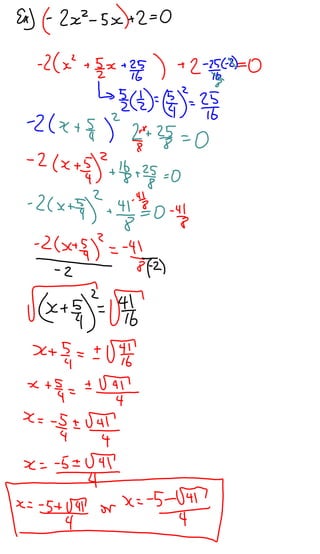 Ex) (-2x² - 5x) + 2 = 0
-2(x² + 5/2 x + 25/16) + 2 - 25/16 (-2) = 0
8
↳ 5/2 (1/2) = (5/4)² = 25/16
-2(x + 5/4)² 2 ×8/×8 + 25/8 = 0
-2(x + 5/4)² + 16/8 + 25/8 = 0
-2(x + 5/4)² + 41/8 - 41/8 = 0 - 41/8
-2(x + 5/4)²/-2 = -41/8(-2)
√(x + 5/4)² = √41/16
x + 5/4 = ± √41/16
x + 5/4 = ± √41/4
x = -5/4 ± √41/4
x = -5 ± √41/4
x = -5 + √41/4 or x = -5 - √41/4